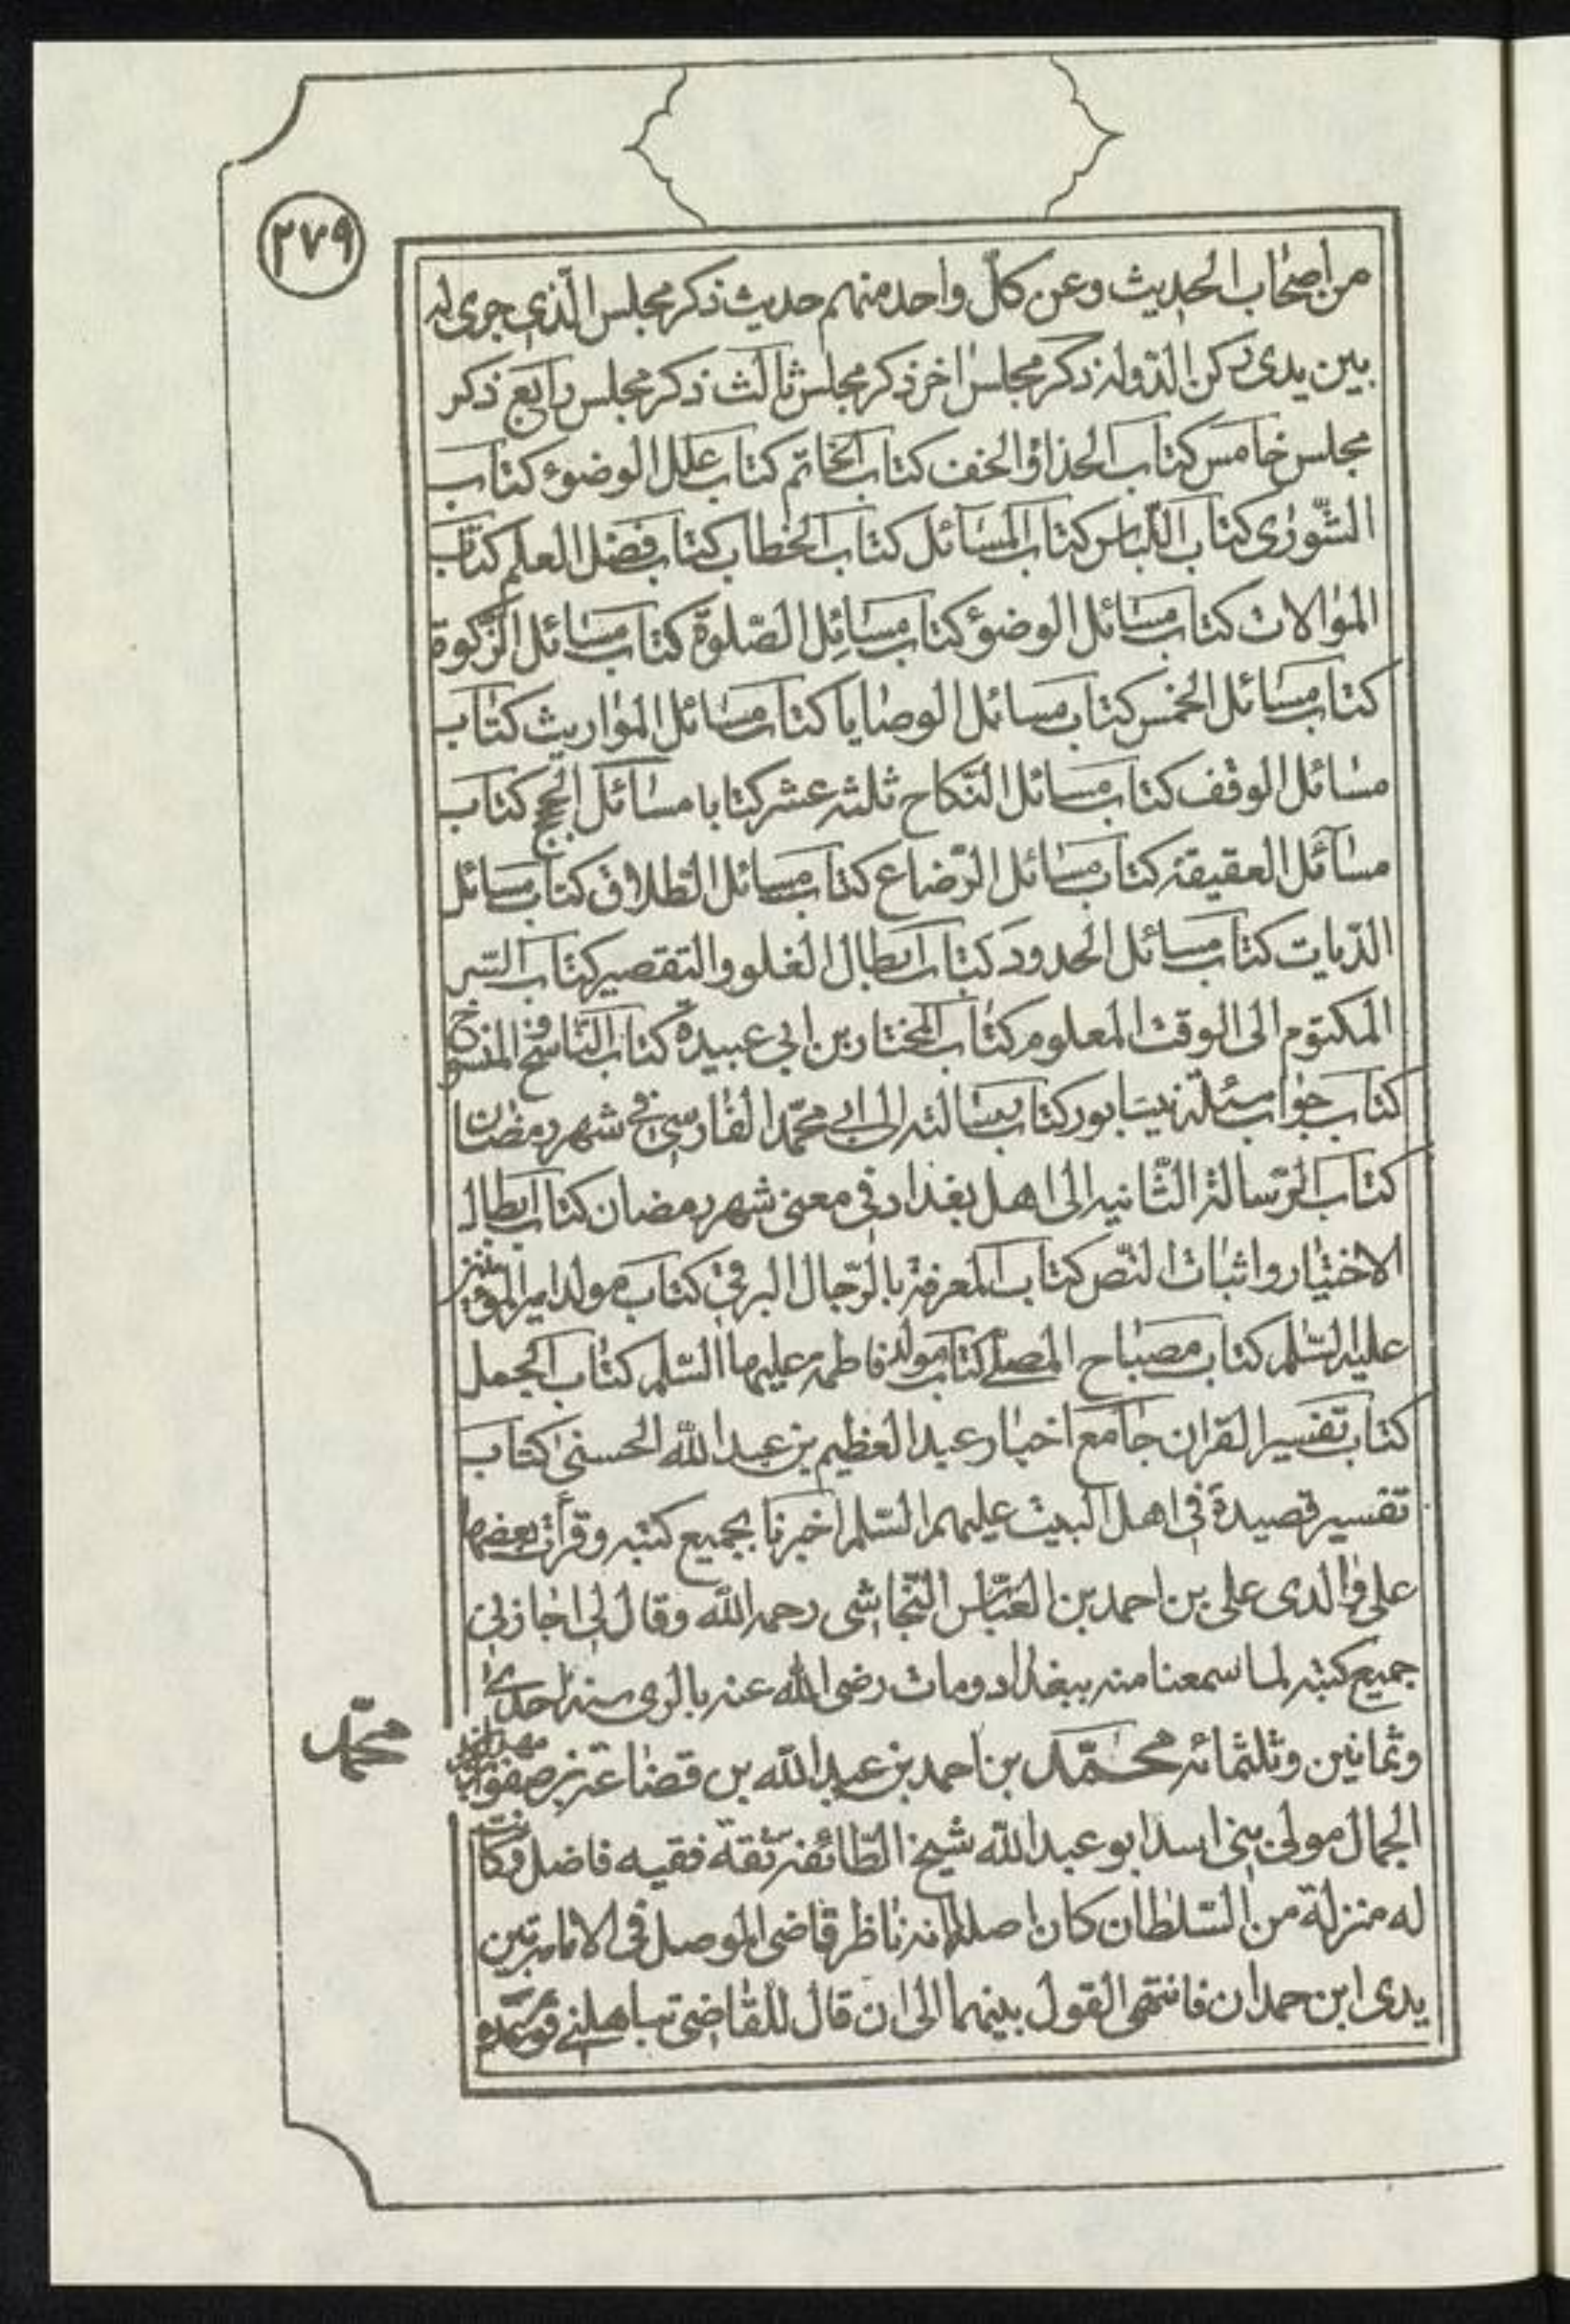 ٢٧٩
من اصحاب الحديث وعن كلّ واحد منهم حديث ذكر مجلس الّذي جرى له
بين يدى ركن الدّوله ذكر مجلس اخر ذكر مجلس ثالث ذكر مجلس رابع ذكر
مجلس خامس كتاب الحذاء والخف كتاب الخاتم كتاب علل الوضوء كتاب
الشّورى كتاب اللّباس كتاب المسائل كتاب الخطاب كتاب فضل العلم كتاب
الموالات كتاب مسائل الوضوء كتاب مسائل الصّلوة كتاب مسائل الزّكوة
كتاب مسائل الخمس كتاب مسائل الوصايا كتاب مسائل المواريث كتاب
مسائل الوقف كتاب مسائل النّكاح ثلثه عشر كتابا مسائل الحج كتاب
مسائل العقيقة كتاب مسائل الرّضاع كتاب مسائل الطلاق كتاب مسائل
الدّيات كتاب مسائل الحدود كتاب ابطال الغلو والتقصير كتاب السّر
المكتوم الى الوقت المعلوم كتاب المختار بن ابي عبيدة كتاب النّاسخ والمنسوخ
كتاب جواب مسئلة نيسابور كتاب رسالته الى ابي محمّد الفارسي في شهر رمضان
كتاب الرّسالة الثّانيه الى اهل بغداد في معنى شهر رمضان كتاب ابطال
الاختيار واثبات النّص كتاب المعرفة بالرّجال البرقي كتاب مولد امير المؤمنين
عليه السّلم كتاب مصباح المصلّى كتاب مولد فاطمه عليهما السّلم كتاب الجمل
كتاب تفسير القران جامع اخبار عبد العظيم بن عبد الله الحسنى كتاب
تفسير قصيدة في اهل البيت عليهم السّلم اخبرنا بجميع كتبه وقرأت بعضها
على والدى على بن احمد بن العبّاس النّجاشى رحمه الله وقال لي اجازني
جميع كتبه لما سمعنا منه ببغداد ومات رضى الله عنه بالرى سنه احدى
وثمانين وثلثمائه محمّد بن احمد بن عبد الله بن قضاعة بن صفوان بن مهران
محمّد
الجمال مولى بني اسد ابو عبد الله شيخ الطّائفة ثقة فقيه فاضل وكانت
له منزلة من السّلطان كان اصلها انه ناظر قاضى الموصل في الامامة بين
يدى ابن حمدان فانتهى القول بينهما الى ان قال للقاضى تباهلنى فوعده